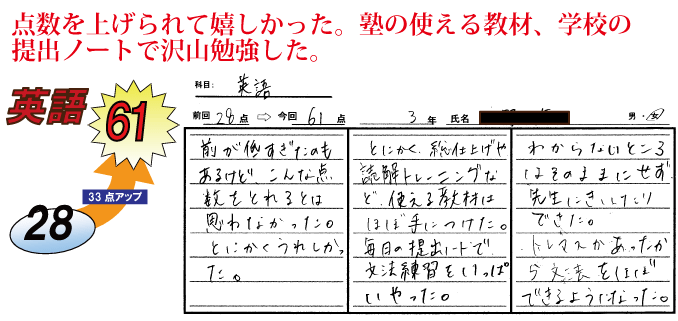 点数を上げられて嬉しかった。塾の使える教材、学校の
提出ノートで沢山勉強した。
英語
61
33点アップ
28
科目: 英語
前回 28点 ⇨ 今回 61点 3年 氏名 男・女
前が低すぎたのも
あるけど、こんな点
数をとれるとは
思わなかった。
とにかくうれしかっ
た。
とにかく、総仕上げや
読解トレーニングな
ど、使える教材は
ほぼ手につけた。
毎日の提出ノートで、
文法練習をいっぱ
いやった。
わからないところ
はそのままにせず
先生にきいたり
できた。
トレマスがあったか
ら文法をほぼ
できるようになった。